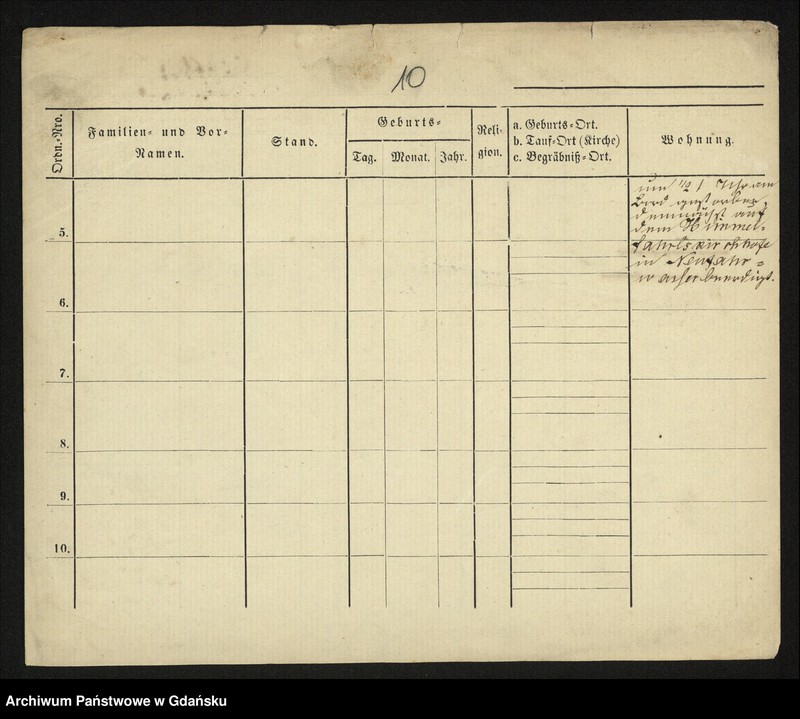 10
Ordn.-Nro.
Familien- und Vor-
Namen.
Stand.
Geburts-
Tag.
Monat.
Jahr.
Reli-
gion.
a. Geburts-Ort.
b. Tauf-Ort (Kirche)
c. Begräbniß-Ort.
Wohnung.
um ½ 1 Uhr am
gestorben,
demnächst auf
dem Himmel-
fahrtskirchhofe
in Neufahr-
wasser beerdigt.
5.
6.
7.
8.
9.
10.
Archiwum Państwowe w Gdańsku